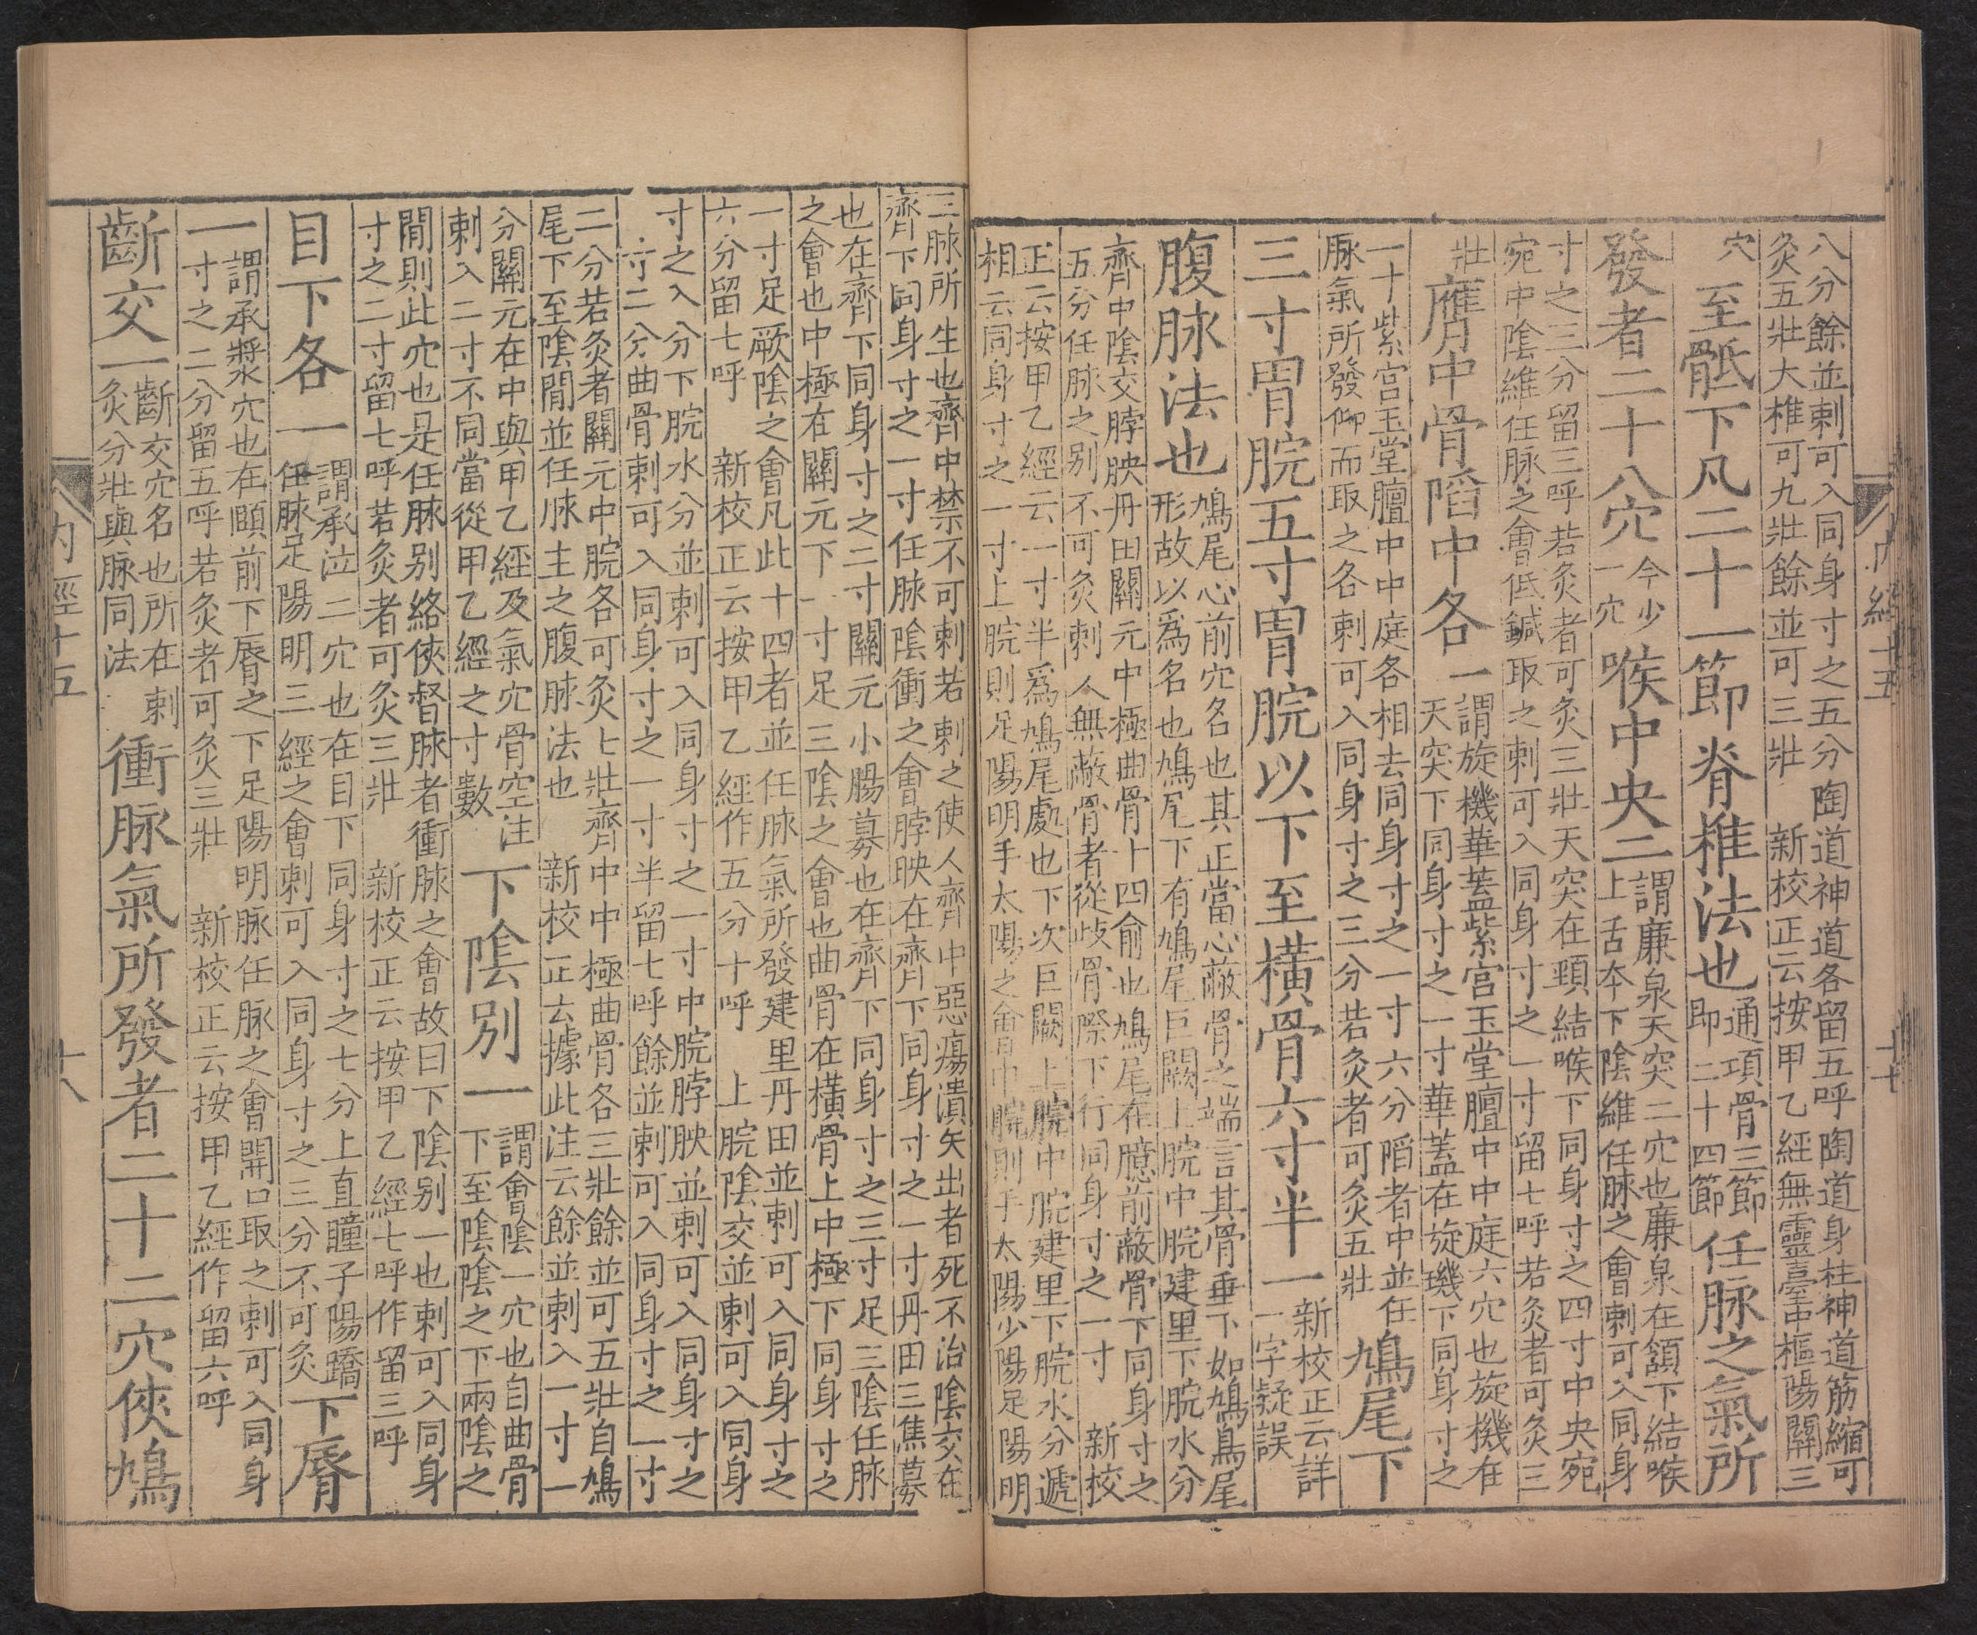 八分餘並刺可入同身寸之五分陶道神道各留五呼陶道身柱神道筋縮可
灸五壯大椎可九壯餘並可三壯　新校正云按甲乙經無靈臺中樞陽關三
穴　至骶下凡二十一節脊椎法也通項骨三節即二十四節任脉之氣所
發者二十八穴今少一穴喉中央二謂廉泉天突二穴也廉泉在頷下結喉上舌本下陰維任脉之會刺可入同身
寸之三分留三呼若灸者可灸三壯天突在頸結喉下同身寸之四寸中央宛
宛中陰維任脉之會低鍼取之刺可入同身寸之一寸留七呼若灸者可灸三
壯　膺中骨陷中各一謂旋機華蓋紫宮玉堂膻中中庭六穴也旋機在天突下同身寸之一寸華蓋在旋璣下同身寸之
一十紫宮玉堂膻中中庭各相去同身寸之一寸六分陷者中並任
脉氣所發仰而取之各刺可入同身寸之三分若灸者可灸五壯　鳩尾下
三寸胃脘五寸胃脘以下至橫骨六寸半一新校正云詳一字疑誤
腹脉法也鳩尾心前穴名也其正當心蔽骨之端言其骨垂下如鳩鳥尾形故以爲名也鳩尾下有鳩尾巨闕上脘中脘建里下脘水分
齊中陰交脖胦丹田關元中極曲骨十四俞也鳩尾在臆前蔽骨下同身寸之
五分任脉之别不可灸刺人無蔽骨者從歧骨際下行同身寸之一寸　新校
正云按甲乙經云一寸半爲鳩尾處也下次巨闕上脘中脘建里下脘水分遞
相去同身寸之一寸上脘則足陽明手太陽之會中脘則手太陽少陽足陽明
内經十五　十七
三脉所生也齊中禁不可刺若刺之使人齊中惡瘍潰矢出者死不治陰交在
齊下同身寸之一寸任脉陰衝之會脖胦在齊下同身寸之一寸丹田三焦募
也在齊下同身寸之二寸關元小腸募也在齊下同身寸之三寸足三陰任脉
之會也中極在關元下一寸足三陰之會也曲骨在橫骨上中極下同身寸之
一寸足厥陰之會凡此十四者並任脉氣所發建里丹田並刺可入同身寸之
六分留七呼　新校正云按甲乙經作五分十呼　上脘陰交並刺可入同身
寸之入分下脘水分並刺可入同身寸之一寸中脘脖胦並刺可入同身寸之
一寸二分曲骨刺可入同身寸之一寸半留七呼餘並刺可入同身寸之一寸
二分若灸者關元中脘各可灸七壯齊中中極曲骨各三壯餘並可五壯自鳩
尾下至陰間並任脉主之腹脉法也　新校正云據此注云餘並刺入一寸一
分關元在中與甲乙經及氣穴骨空注
刺入二寸不同當從甲乙經之寸數　下陰別一謂會陰一穴也自曲骨下至陰陰之下兩陰之
間則此穴也是任脉别絡俠督脉者衝脉之會故曰下陰别一也刺可入同身
寸之二寸留七呼若灸者可灸三壯　新校正云按甲乙經七呼作留三呼
目下各一謂承泣二穴也在目下同身寸之七分上直瞳子陽蹻任脉足陽明三經之會刺可入同身寸之三分不可灸下脣
一謂承漿穴也在頤前下脣之下足陽明脉任脉之會開口取之刺可入同身寸之二分留五呼若灸者可灸三壯　新校正云按甲乙經作留六呼
齗交一齗交穴名也所在刺灸分壯與脉同法衝脉氣所發者二十二穴俠鳩
内經十五　十八